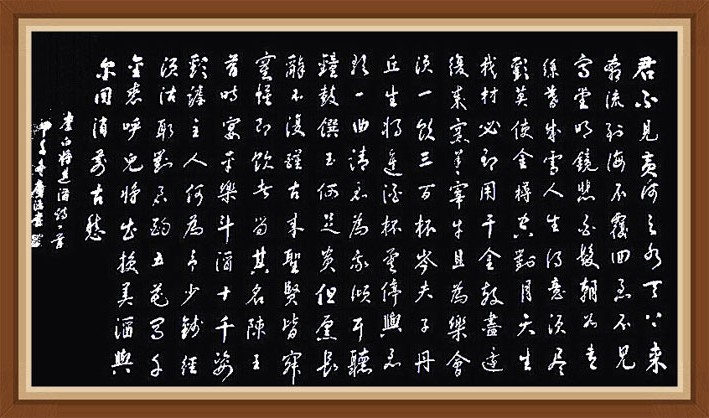 君不見黃河之水天上來
奔流到海不覆回君不見
高堂明鏡悲白髮朝如青
絲暮成雪人生得意須盡
歡莫使金樽空對月天生
我材必有用千金散盡還
復來烹羊宰牛且為樂會
須一飲三百杯岑夫子丹
丘生將進酒杯莫停與君
歌一曲請君為我傾耳聽
鐘鼓饌玉何足貴但願長
醉不復醒古來聖賢皆寂
寞惟有飲者留其名陳王
昔時宴平樂斗酒十千恣
歡謔主人何為言少錢徑
須沽取對君酌五花馬千
金裘呼兒將出換美酒與
爾同消萬古愁
李白將進酒詩一首